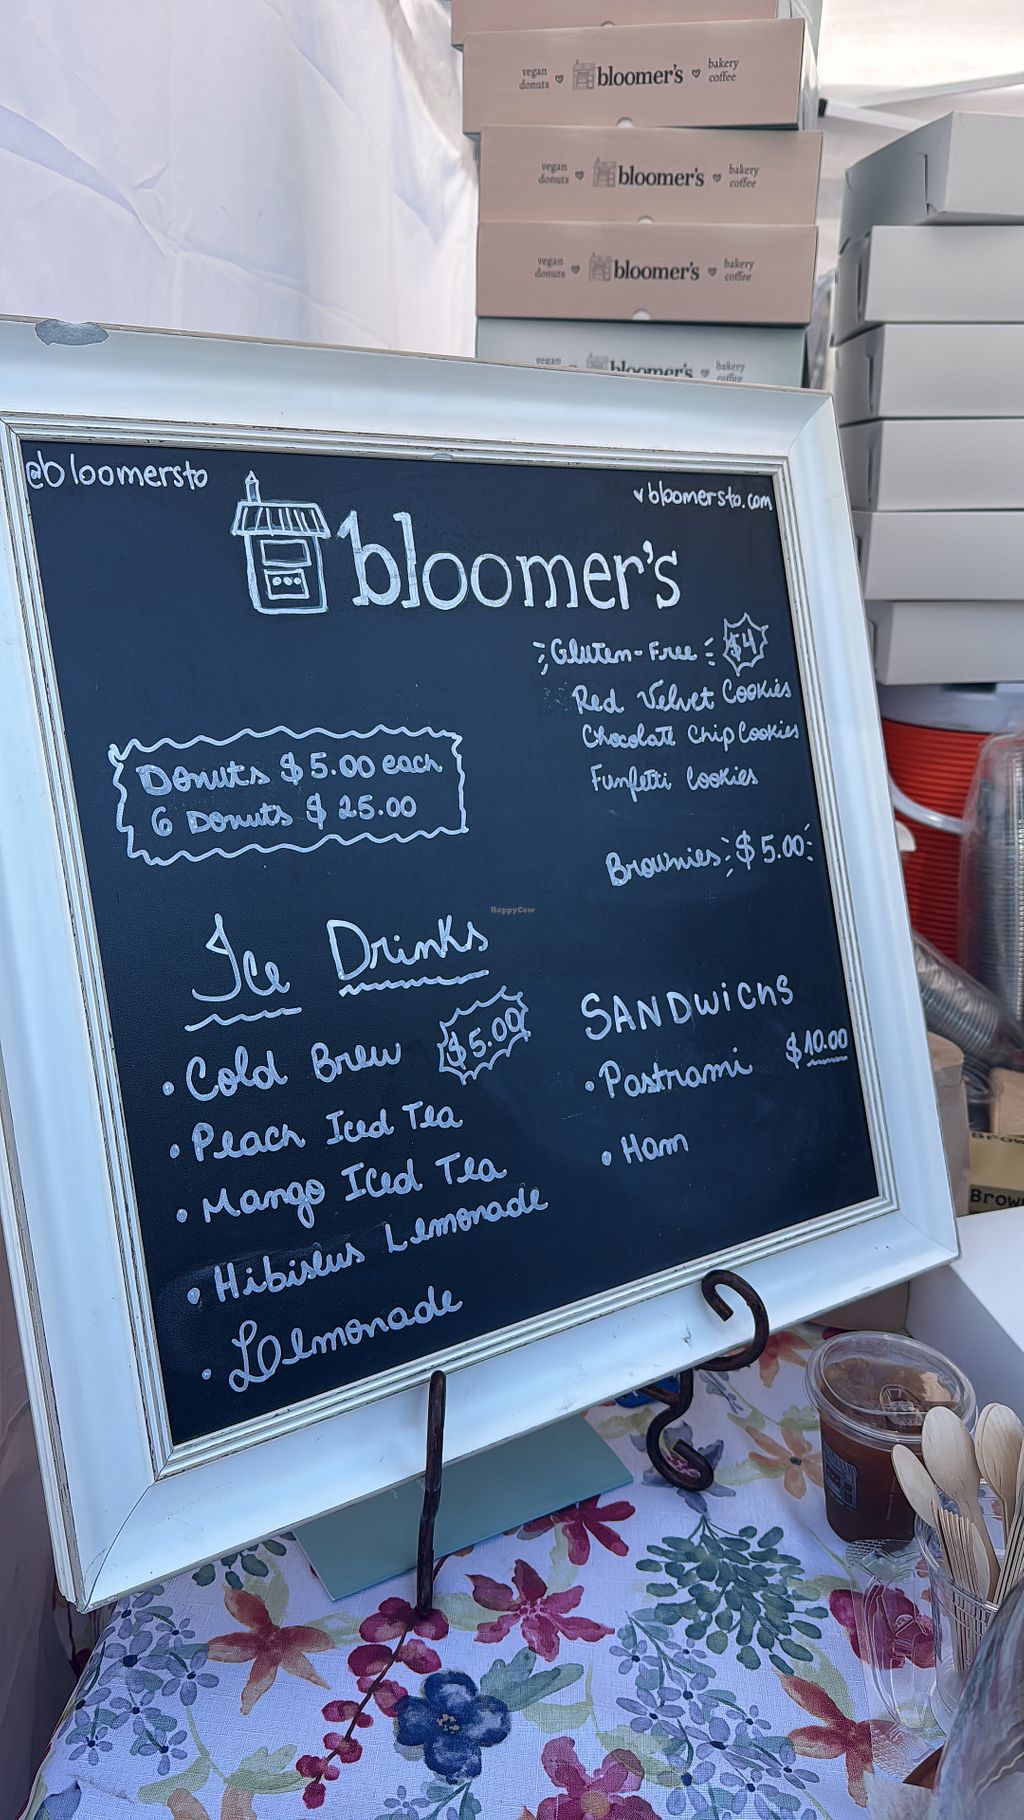 vegan donuts bloomer's bakery coffee
vegan donuts bloomer's bakery coffee
vegan donuts bloomer's bakery coffee
vegan bloomer's bakery coffee
@bloomersto
bloomersto.com
bloomer's
Gluten-Free $4
Red Velvet Cookies
Chocolate Chip Cookies
Funfetti Cookies
Donuts $5.00 each
6 Donuts $25.00
Brownies $5.00
Ice Drinks
• Cold Brew $5.00
• Peach Iced Tea
• Mango Iced Tea
• Hibiscus Lemonade
• Lemonade
SANDWICHS
• Pastrami $10.00
• Ham
HappyCow
Brown